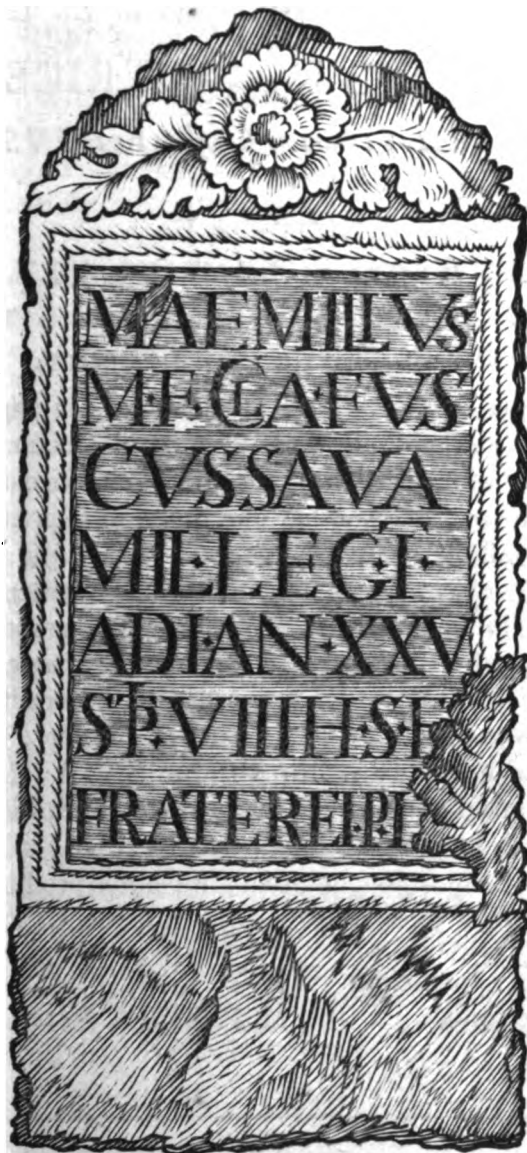 MAEMILIVS
M·F·CLA·FVS
CVSSAVA
MIL·LEG·I·
ADI·AN·XXV
STP·VIIII H·S·E
FRATER EI·P·